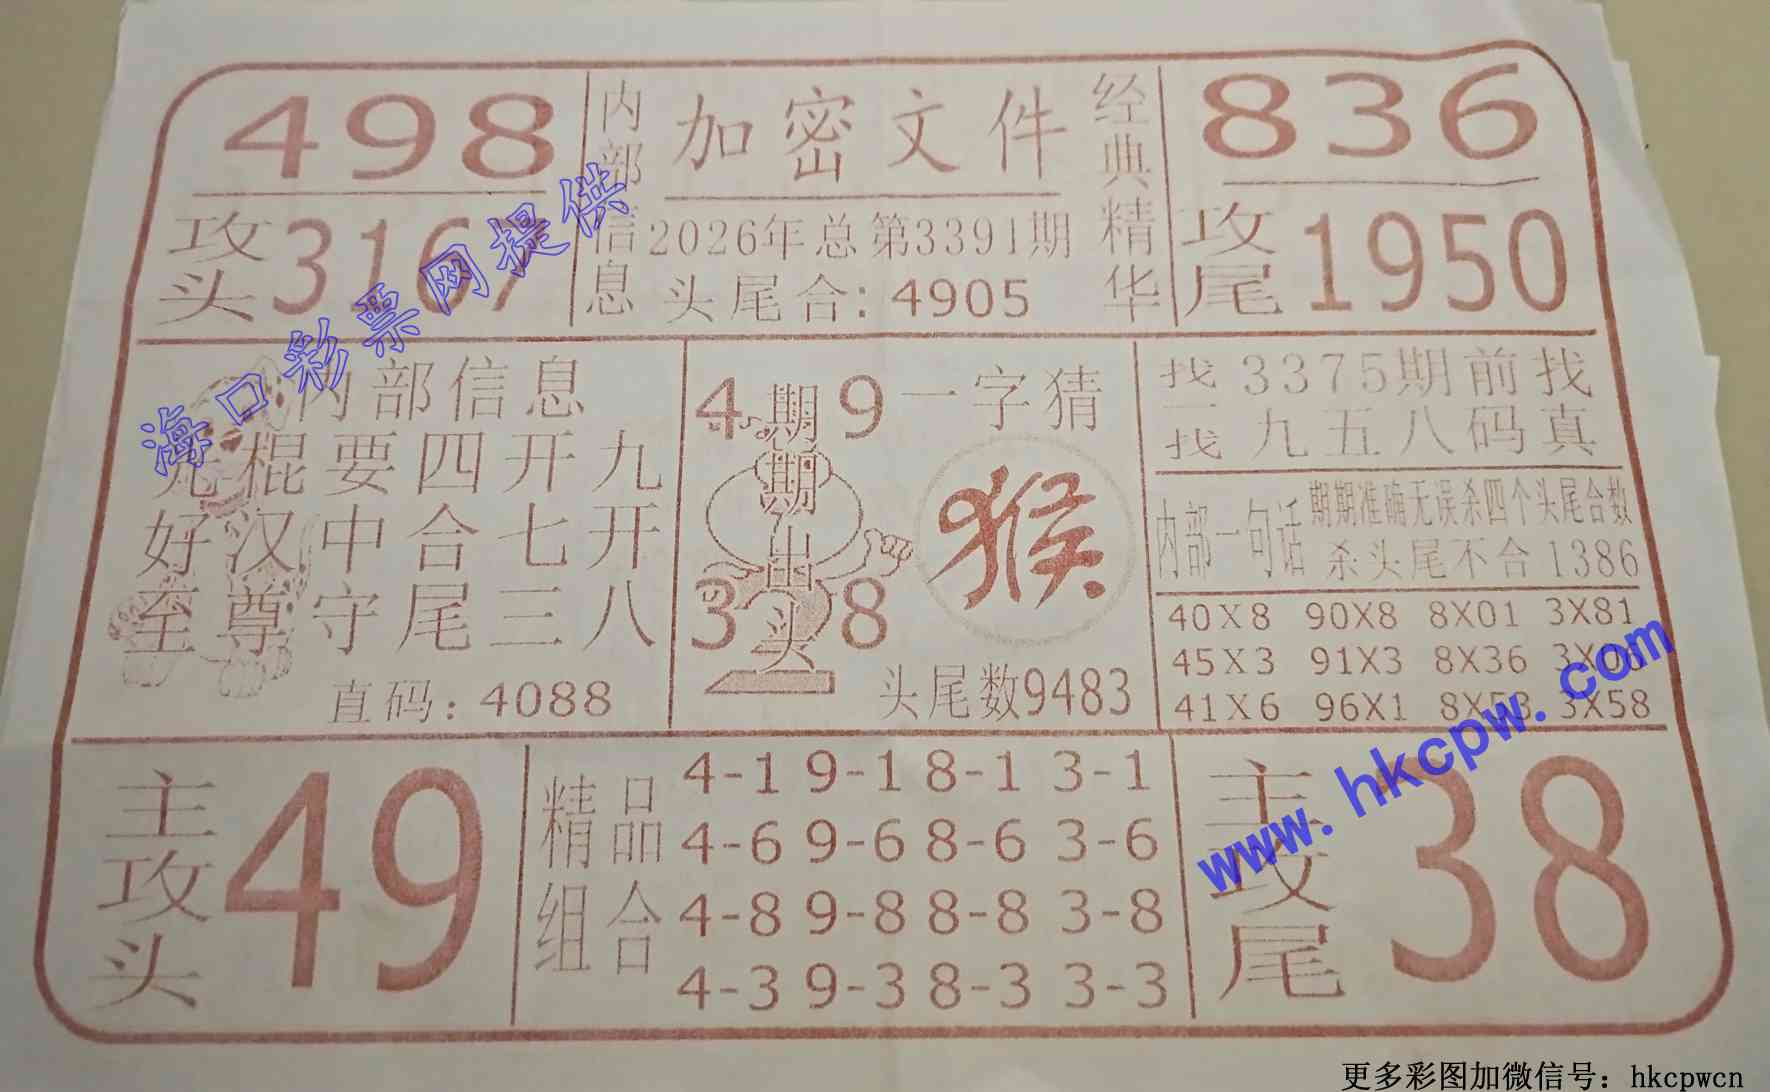 498
攻头 3167
内部信息
加密文件
2026年总第3391期
头尾合: 4905
经典精华
836
攻尾 1950
内部信息
光棍要四开九
好汉中合七开
至尊守尾三八
直码: 4088
4 9
期期出头
3 8
一字猜
猴
头尾数9483
找一找
3375期前找
九五八码真
内部一句话
期期准确无误杀四个头尾合数
杀头尾不合1386
40X8 90X8 8X01 3X81
45X3 91X3 8X36 3X06
41X6 96X1 8X53 3X58
主攻头 49
精品组合
4-1 9-1 8-1 3-1
4-6 9-6 8-6 3-6
4-8 9-8 8-8 3-8
4-3 9-3 8-3 3-3
主攻尾 38
海口彩票网提供
www.hkcpw.com
更多彩图加微信号: hkcpwcn